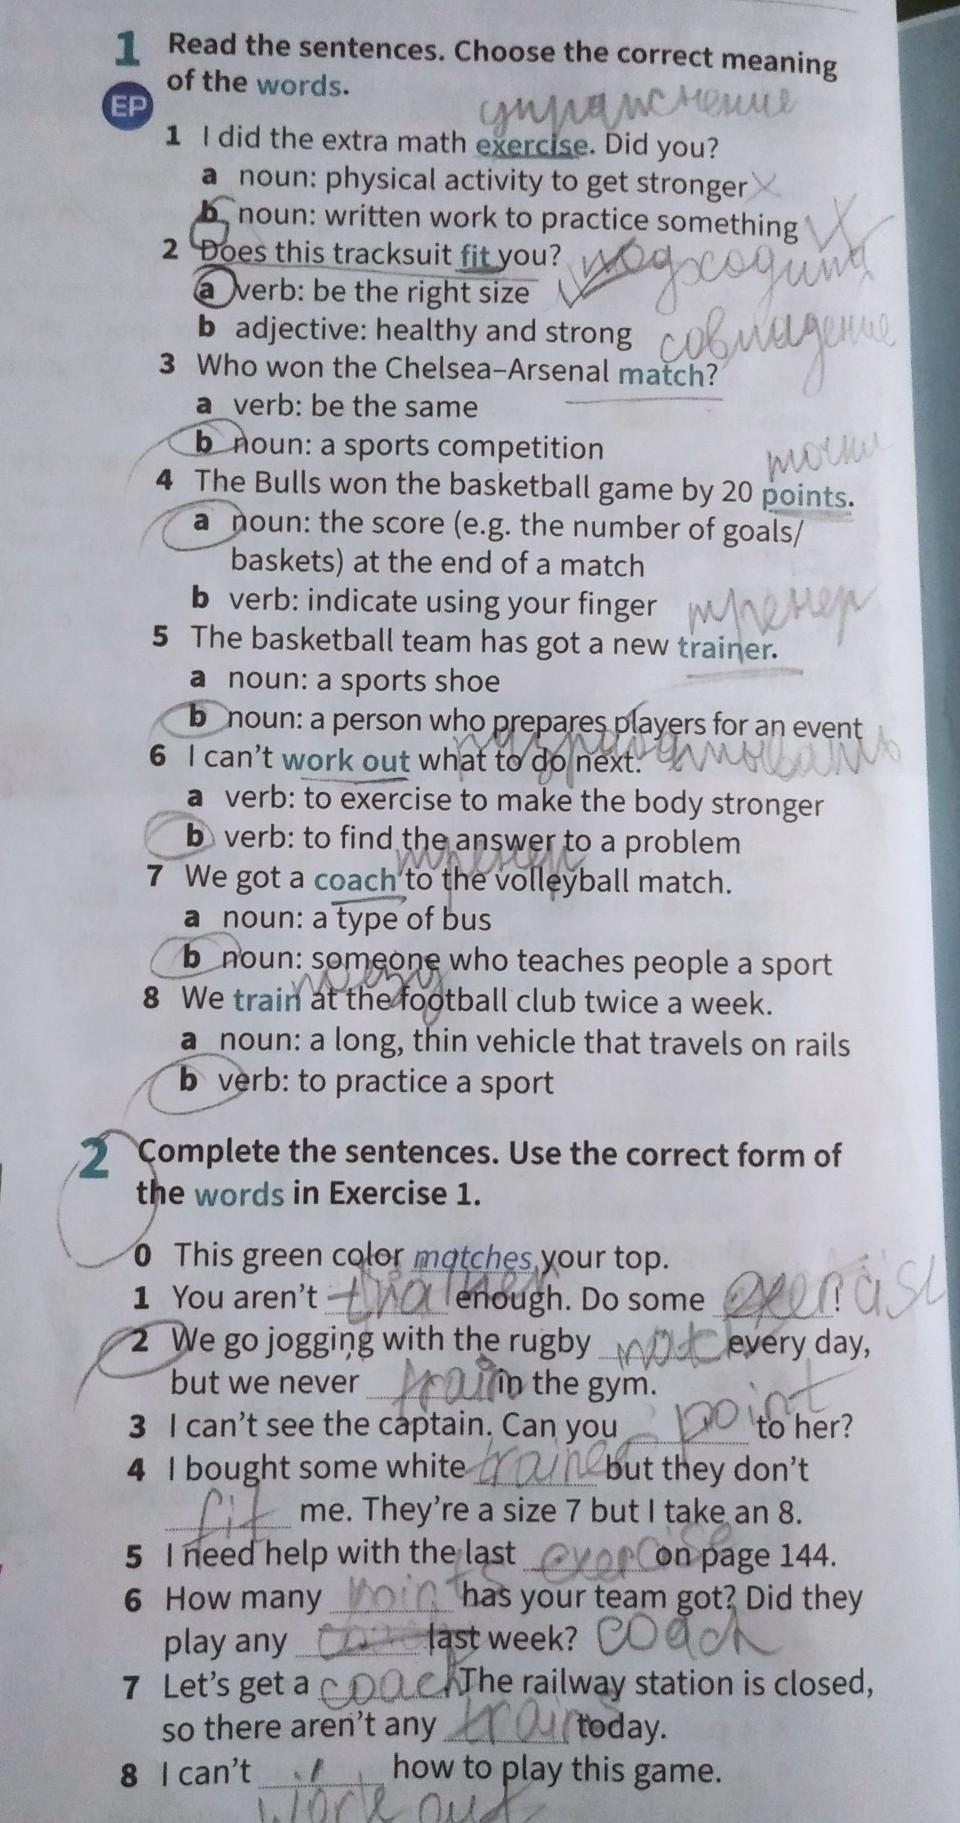 1 Read the sentences. Choose the correct meaning
of the words.
EP
упражнение
1 I did the extra math exercise. Did you?
a noun: physical activity to get stronger
b noun: written work to practice something
2 Does this tracksuit fit you?
подходит
a verb: be the right size
b adjective: healthy and strong
совпадение
3 Who won the Chelsea–Arsenal match?
a verb: be the same
b noun: a sports competition
точки
4 The Bulls won the basketball game by 20 points.
a noun: the score (e.g. the number of goals/
baskets) at the end of a match
b verb: indicate using your finger
тренер
5 The basketball team has got a new trainer.
a noun: a sports shoe
b noun: a person who prepares players for an event
6 I can't work out what to do next.
a verb: to exercise to make the body stronger
b verb: to find the answer to a problem
тренер
7 We got a coach to the volleyball match.
a noun: a type of bus
b noun: someone who teaches people a sport
поезд
8 We train at the football club twice a week.
a noun: a long, thin vehicle that travels on rails
b verb: to practice a sport
2 Complete the sentences. Use the correct form of
the words in Exercise 1.
0 This green color matches your top.
1 You aren't trainer enough. Do some exercise!
2 We go jogging with the rugby every day,
but we never train in the gym.
3 I can't see the captain. Can you point to her?
4 I bought some white trainer but they don't
fit me. They're a size 7 but I take an 8.
5 I need help with the last exercise on page 144.
6 How many points has your team got? Did they
play any last week? coach
7 Let's get a coach. The railway station is closed,
so there aren't any train today.
8 I can't how to play this game.
work out